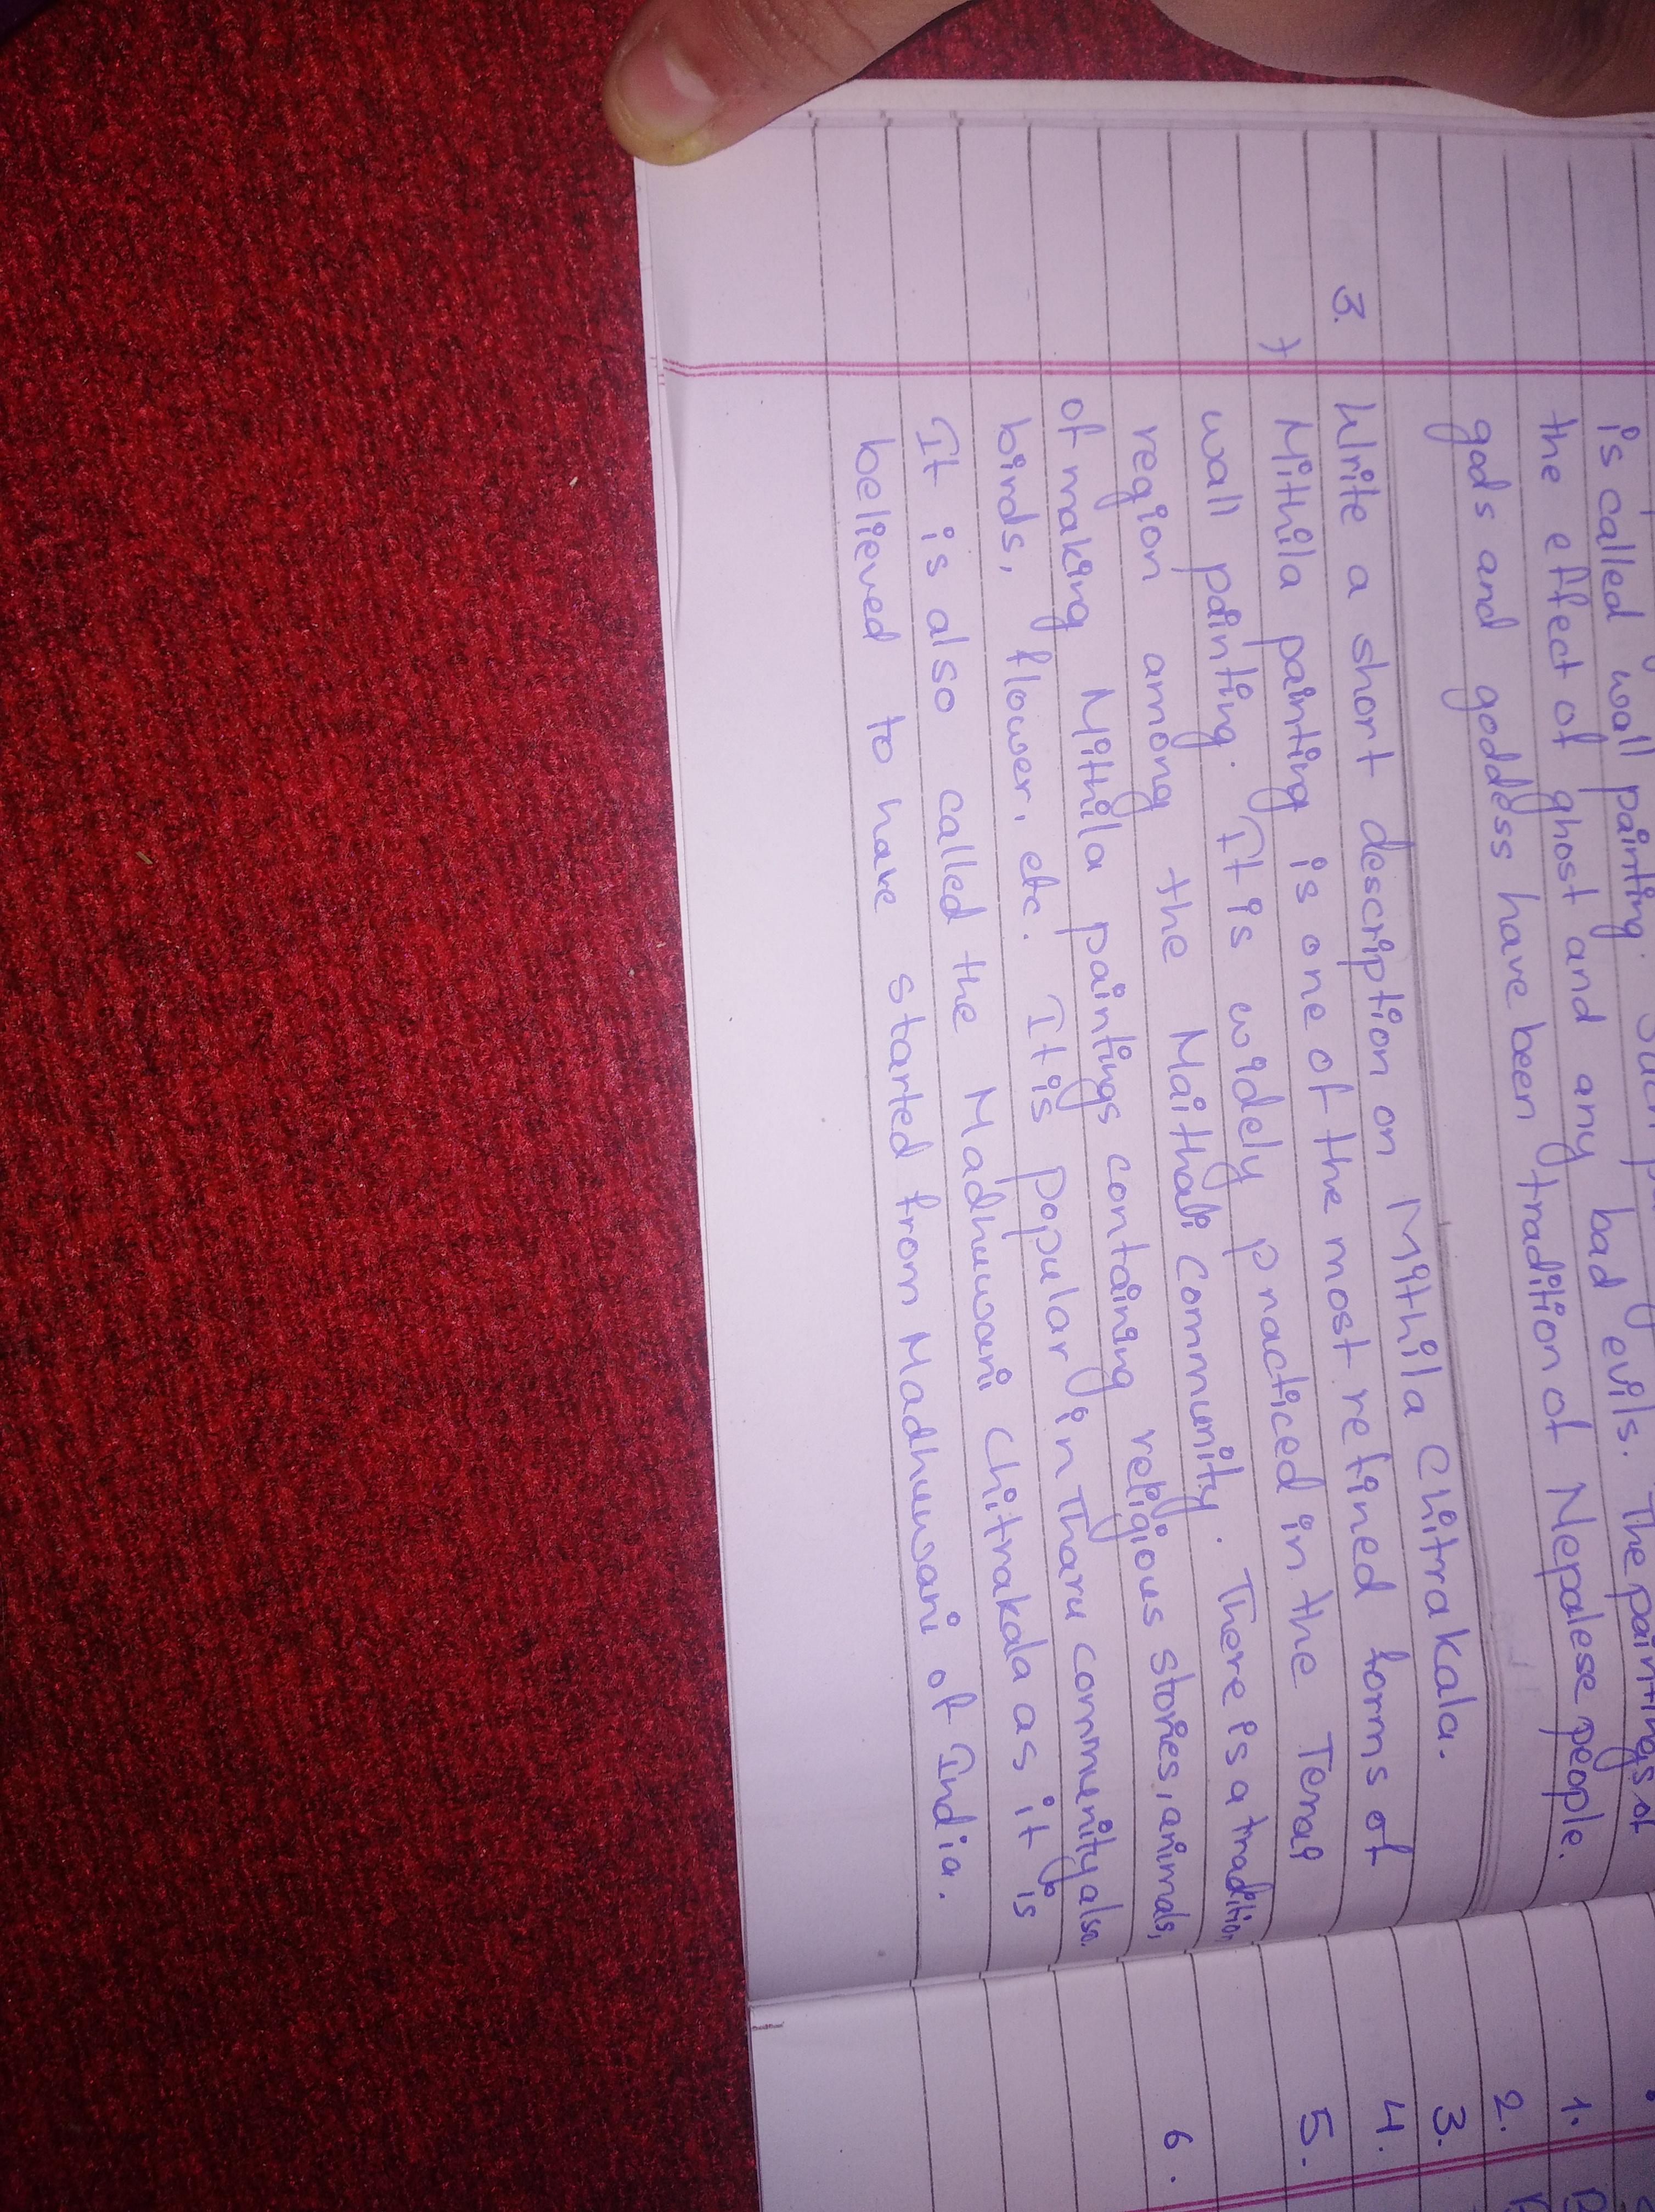 is called wall painting. The paintings of
the effect of ghost and any bad evils.
gods and goddess have been tradition of Nepalese people.
3. Write a short description on Mithila Chitrakala.
→ Mithila painting is one of the most refined forms of
wall painting. It is widely practiced in the Terai
region among the Maithali community. There is a tradition
of making Mithila paintings containing religious stories, animals,
birds, flower, etc. It is popular in Tharu community also.
It is also called the Madhuwani Chitrakala as it is
believed to have started from Madhuwani of India.
1.
2.
3.
4.
5.
6.